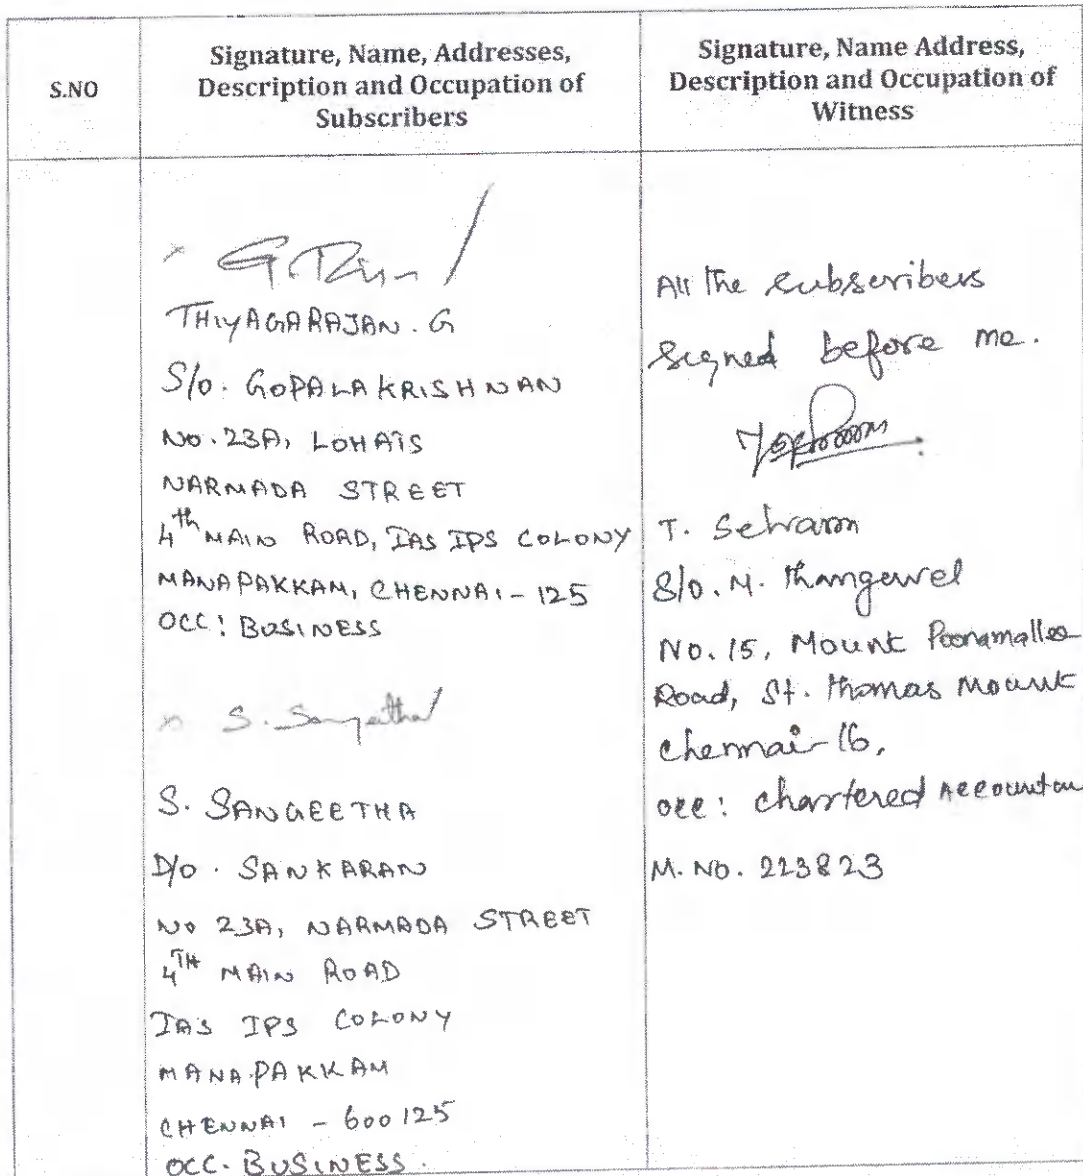 S.NO
Signature, Name, Addresses,
Description and Occupation of
Subscribers
Signature, Name Address,
Description and Occupation of
Witness
THIYAGARAJAN. G
S/o. GOPALAKRISHNAN
No. 23A, LOHAIS
NARMADA STREET
4th MAIN ROAD, IAS IPS COLONY
MANAPAKKAM, CHENNAI - 125
OCC: BUSINESS
S. Sangeetha
S. SANGEETHA
D/o. SANKARAN
No 23A, NARMADA STREET
4TH MAIN ROAD
IAS IPS COLONY
MANAPAKKAM
CHENNAI - 600125
OCC. BUSINESS.
All the subscribers
signed before me.
T. Selvam
S/o. M. Thangavel
No. 15, Mount Poonamallee
Road, St. Thomas Mount
Chennai-16.
occ: chartered Accountan
M. No. 223823